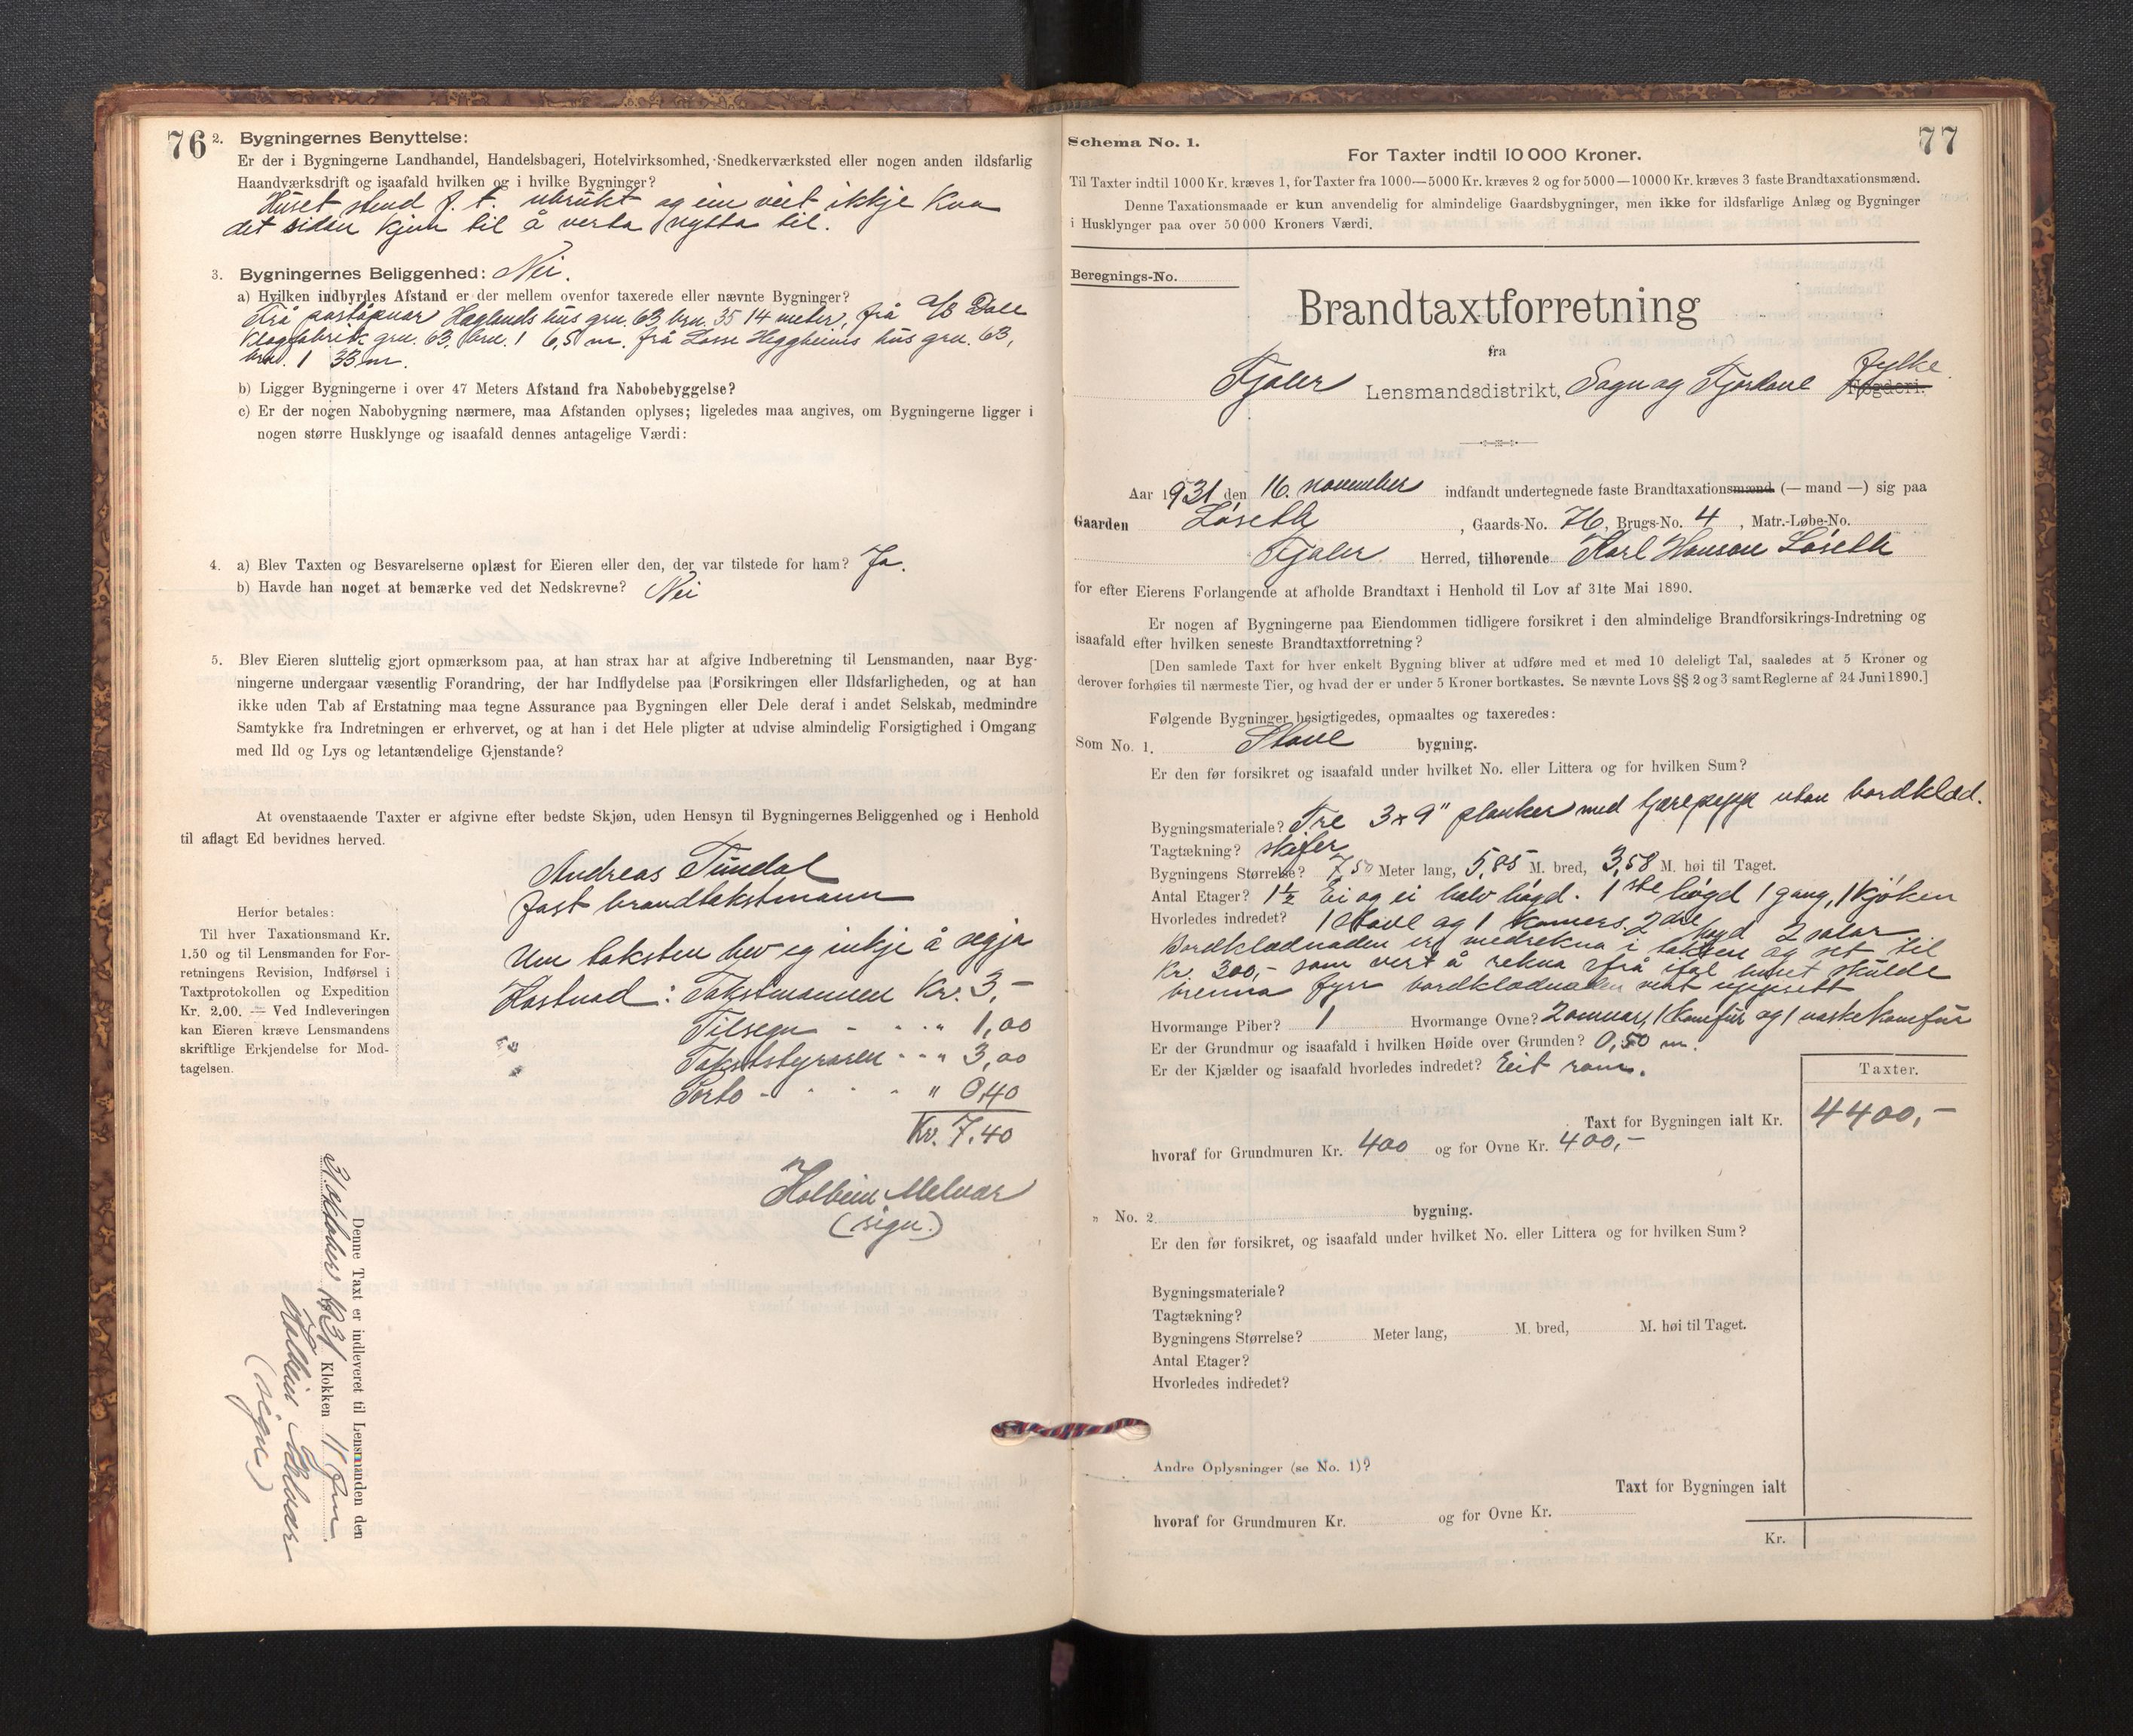 76
2. Bygningernes Benyttelse:
Er der i Bygningerne Landhandel, Handelsbageri, Hotelvirksomhed, Snedkerværksted eller nogen anden ildsfarlig
Haandværksdrift og isaafald hvilken og i hvilke Bygninger?
Huset stend f. t. ubrukt og ein veit ikkje kva
det sidan kjem til å verta nytta til.
3. Bygningernes Beliggenhed: Nei.
a) Hvilken indbyrdes Afstand er der mellem ovenfor taxerede eller nævnte Bygninger?
Frå postopnar Hæglands hus gnr. 63 brn. 35 14 meter, frå A/B Dale
gnr. 63, brn. 1 6,5 m. frå Lasse Heggheims hus gnr. 63,
brn. 1 33 m.
b) Ligger Bygningerne i over 47 Meters Afstand fra Nabobebyggelse?
c) Er der nogen Nabobygning nærmere, maa Afstanden oplyses; ligeledes maa angives, om Bygningerne ligger i
nogen større Husklynge og isaafald dennes antagelige Værdi:
4. a) Blev Taxten og Besvarelserne oplæst for Eieren eller den, der var tilstede for ham? Ja.
b) Havde han noget at bemærke ved det Nedskrevne? Nei
5. Blev Eieren sluttelig gjort opmærksom paa, at han strax har at afgive Indberetning til Lensmanden, naar Byg-
ningerne undergaar væsentlig Forandring, der har Indflydelse paa Forsikringen eller Ildsfarligheden, og at han
ikke uden Tab af Erstatning maa tegne Assurance paa Bygningen eller Dele deraf i andet Selskab, medmindre
Samtykke fra Indretningen er erhvervet, og at han i det Hele pligter at udvise almindelig Forsigtighed i Omgang
med Ild og Lys og letantændelige Gjenstande?
At ovenstaaende Taxter er afgivne efter bedste Skjøn, uden Hensyn til Bygningernes Beliggenhed og i Henhold
til aflagt Ed bevidnes herved.
Andreas Tundal
fast brandtakstmann
Um taksten hev eg inkje å segja
Kostnad: Takstmannen Kr. 3,-
Tilsegn - - - " 1,00
Takststyraren - - " 3,00
Porto - - - - " 0,40
Kr. 7.40
Halbein Melvær
(sign.)
Herfor betales:
Til hver Taxationsmand Kr.
1.50 og til Lensmanden for For-
retningens Revision, Indførsel i
Taxtprotokollen og Expedition
Kr. 2.00. — Ved Indleveringen
kan Eieren kræve Lensmandens
skriftlige Erkjendelse for Mod-
tagelsen.
Denne Taxt er indleveret til Lensmanden den
31. oktober 1931 Klokken 11 fm
Halbein Melvær
(sign.)
77
Schema No. 1.
For Taxter indtil 10 000 Kroner.
Til Taxter indtil 1000 Kr. kræves 1, for Taxter fra 1000—5000 Kr. kræves 2 og for 5000—10000 Kr. kræves 3 faste Brandtaxationsmænd.
Denne Taxationsmaade er kun anvendelig for almindelige Gaardsbygninger, men ikke for ildsfarlige Anlæg og Bygninger
i Husklynger paa over 50 000 Kroners Værdi.
Beregnings-No.
Brandtaxtforretning
fra
Fjaler Lensmandsdistrikt, Sogn og Fjordane Fogderi. fylke.
Aar 1931 den 16. november indfandt undertegnede faste Brandtaxationsmænd (— mand —) sig paa
Gaarden Løseth, Gaards-No. 76, Brugs-No. 4, Matr.-Løbe-No.
Fjaler Herred, tilhørende Karl Hanson Løseth
for efter Eierens Forlangende at afholde Brandtaxt i Henhold til Lov af 31te Mai 1890.
Er nogen af Bygningerne paa Eiendommen tidligere forsikret i den almindelige Brandforsikrings-Indretning og
isaafald efter hvilken seneste Brandtaxtforretning?
[Den samlede Taxt for hver enkelt Bygning bliver at udføre med et med 10 deleligt Tal, saaledes at 5 Kroner og
derover forhøies til nærmeste Tier, og hvad der er under 5 Kroner bortkastes. Se nævnte Lovs §§ 2 og 3 samt Reglerne af 24 Juni 1890.]
Følgende Bygninger besigtigedes, opmaaltes og taxeredes:
Som No. 1. Stove bygning.
Er den før forsikret og isaafald under hvilket No. eller Littera og for hvilken Sum?
Bygningsmateriale? Tre 3 x 9" planker med tjærepapp utan bordklæd.
Tagtækning? skifer
Bygningens Størrelse? 7,50 Meter lang, 5,85 M. bred, 3,58 M. høi til Taget.
Antal Etager? 1½ Ei og ei halv høgd. 1ste høgd 1 gang, 1 kjøken
Hvorledes indredet? 1 stove og 1 kamers, 2dre høgd 2 salar
Bordklædnaden er medrekna i taksten og set til
Kr. 300,- som vert å rekna ifrå ifal huset skulde
brenna fyrr bordklædnaden vert uppsett
Hvormange Piber? 1 Hvormange Ovne? 2 omnar, 1 komfur og 1 vaskekomfur
Er der Grundmur og isaafald i hvilken Høide over Grunden? 0,50 m.
Er der Kjælder og isaafald hvorledes indredet? Eit rom.
Taxter.
Taxt for Bygningen ialt Kr. 4400,-
hvoraf for Grundmuren Kr. 400 og for Ovne Kr. 400,-
" No. 2 bygning.
Er den før forsikret, og isaafald under hvilket No. eller Littera og for hvilken Sum?
Bygningsmateriale?
Tagtækning?
Bygningens Størrelse? Meter lang, M. bred, M. høi til Taget.
Antal Etager?
Hvorledes indredet?
Andre Oplysninger (se No. 1)?
Taxt for Bygningen ialt
hvoraf for Grundmuren Kr. og for Ovne Kr.
Kr.